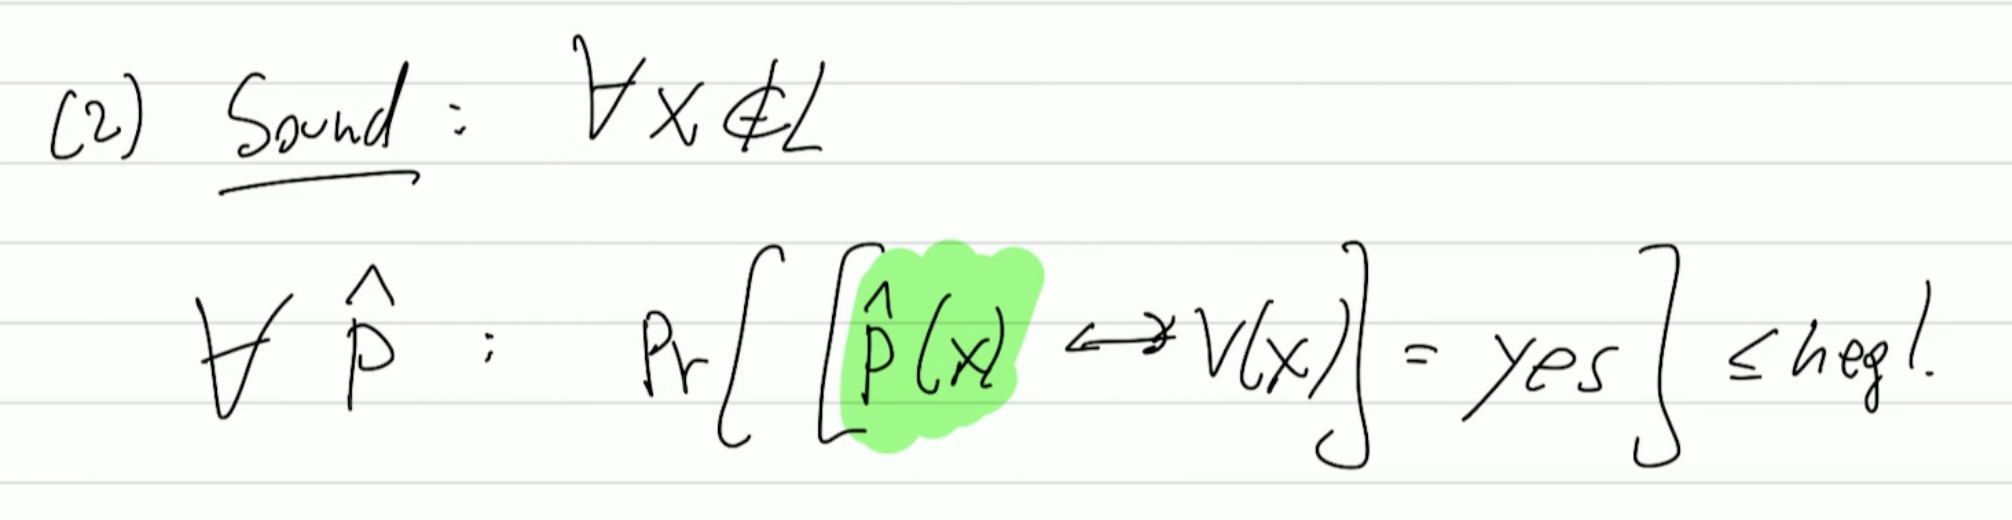 (2) Sound : ∀ x ∉ L
∀ p̂ : Pr[ [p̂(x) ↔ V(x)] = yes ] ≤ negl.